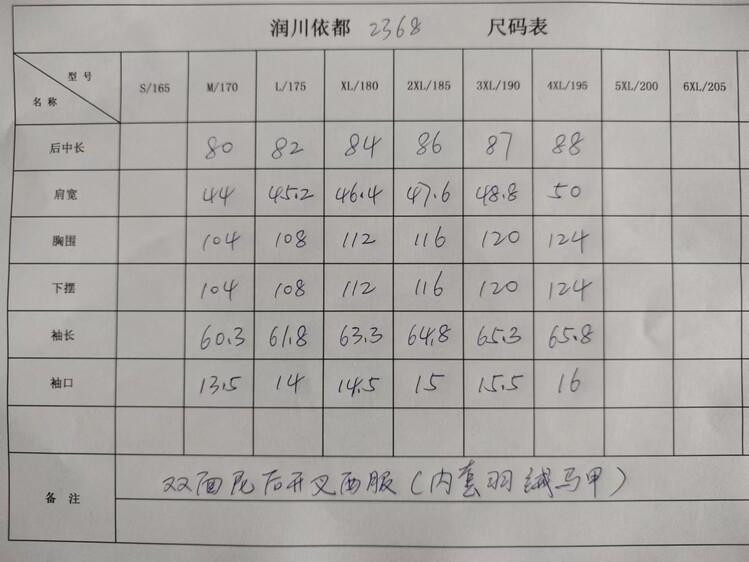 润川依都 2368 尺码表
型号 S/165 M/170 L/175 XL/180 2XL/185 3XL/190 4XL/195 5XL/200 6XL/205
名称
后中长 80 82 84 86 87 88
肩宽 44 45.2 46.4 47.6 48.8 50
胸围 104 108 112 116 120 124
下摆 104 108 112 116 120 124
袖长 60.3 61.8 63.3 64.8 65.3 65.8
袖口 13.5 14 14.5 15 15.5 16
备注 双面尼后开叉西服(内套羽绒马甲)